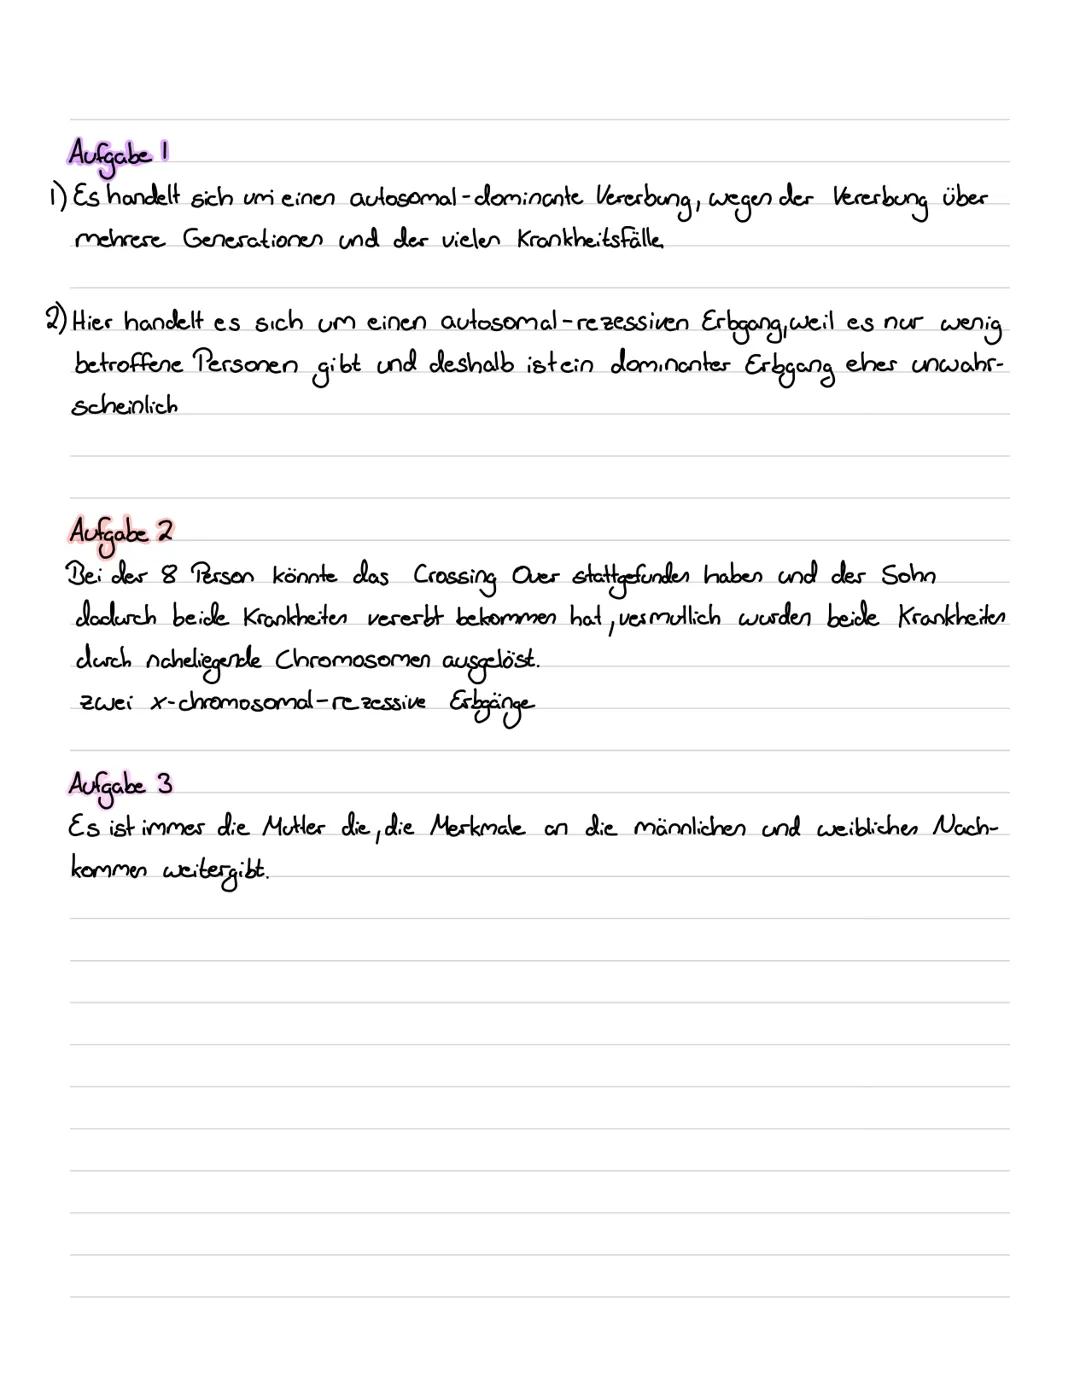 Aufgabe 1
1) Es handelt sich um einen autosomal-dominante Vererbung, wegen der Vererbung über
mehrere Generationen und der vielen Krankheitsfälle.
2) Hier handelt es sich um einen autosomal-rezessiven Erbgang, weil es nur wenig
betroffene Personen gibt und deshalb ist ein dominanter Erbgang eher unwahr-
scheinlich
Aufgabe 2
Bei der 8 Person könnte das Crossing Over stattgefunden haben und der Sohn
dadurch beide Krankheiten vererbt bekommen hat, vermutlich wurden beide Krankheiten
durch naheliegende Chromosomen ausgelöst.
zwei x-chromosomal-rezessive Erbgänge
Aufgabe 3
Es ist immer die Mutter die, die Merkmale an die männlichen und weiblichen Nach-
kommen weitergibt.